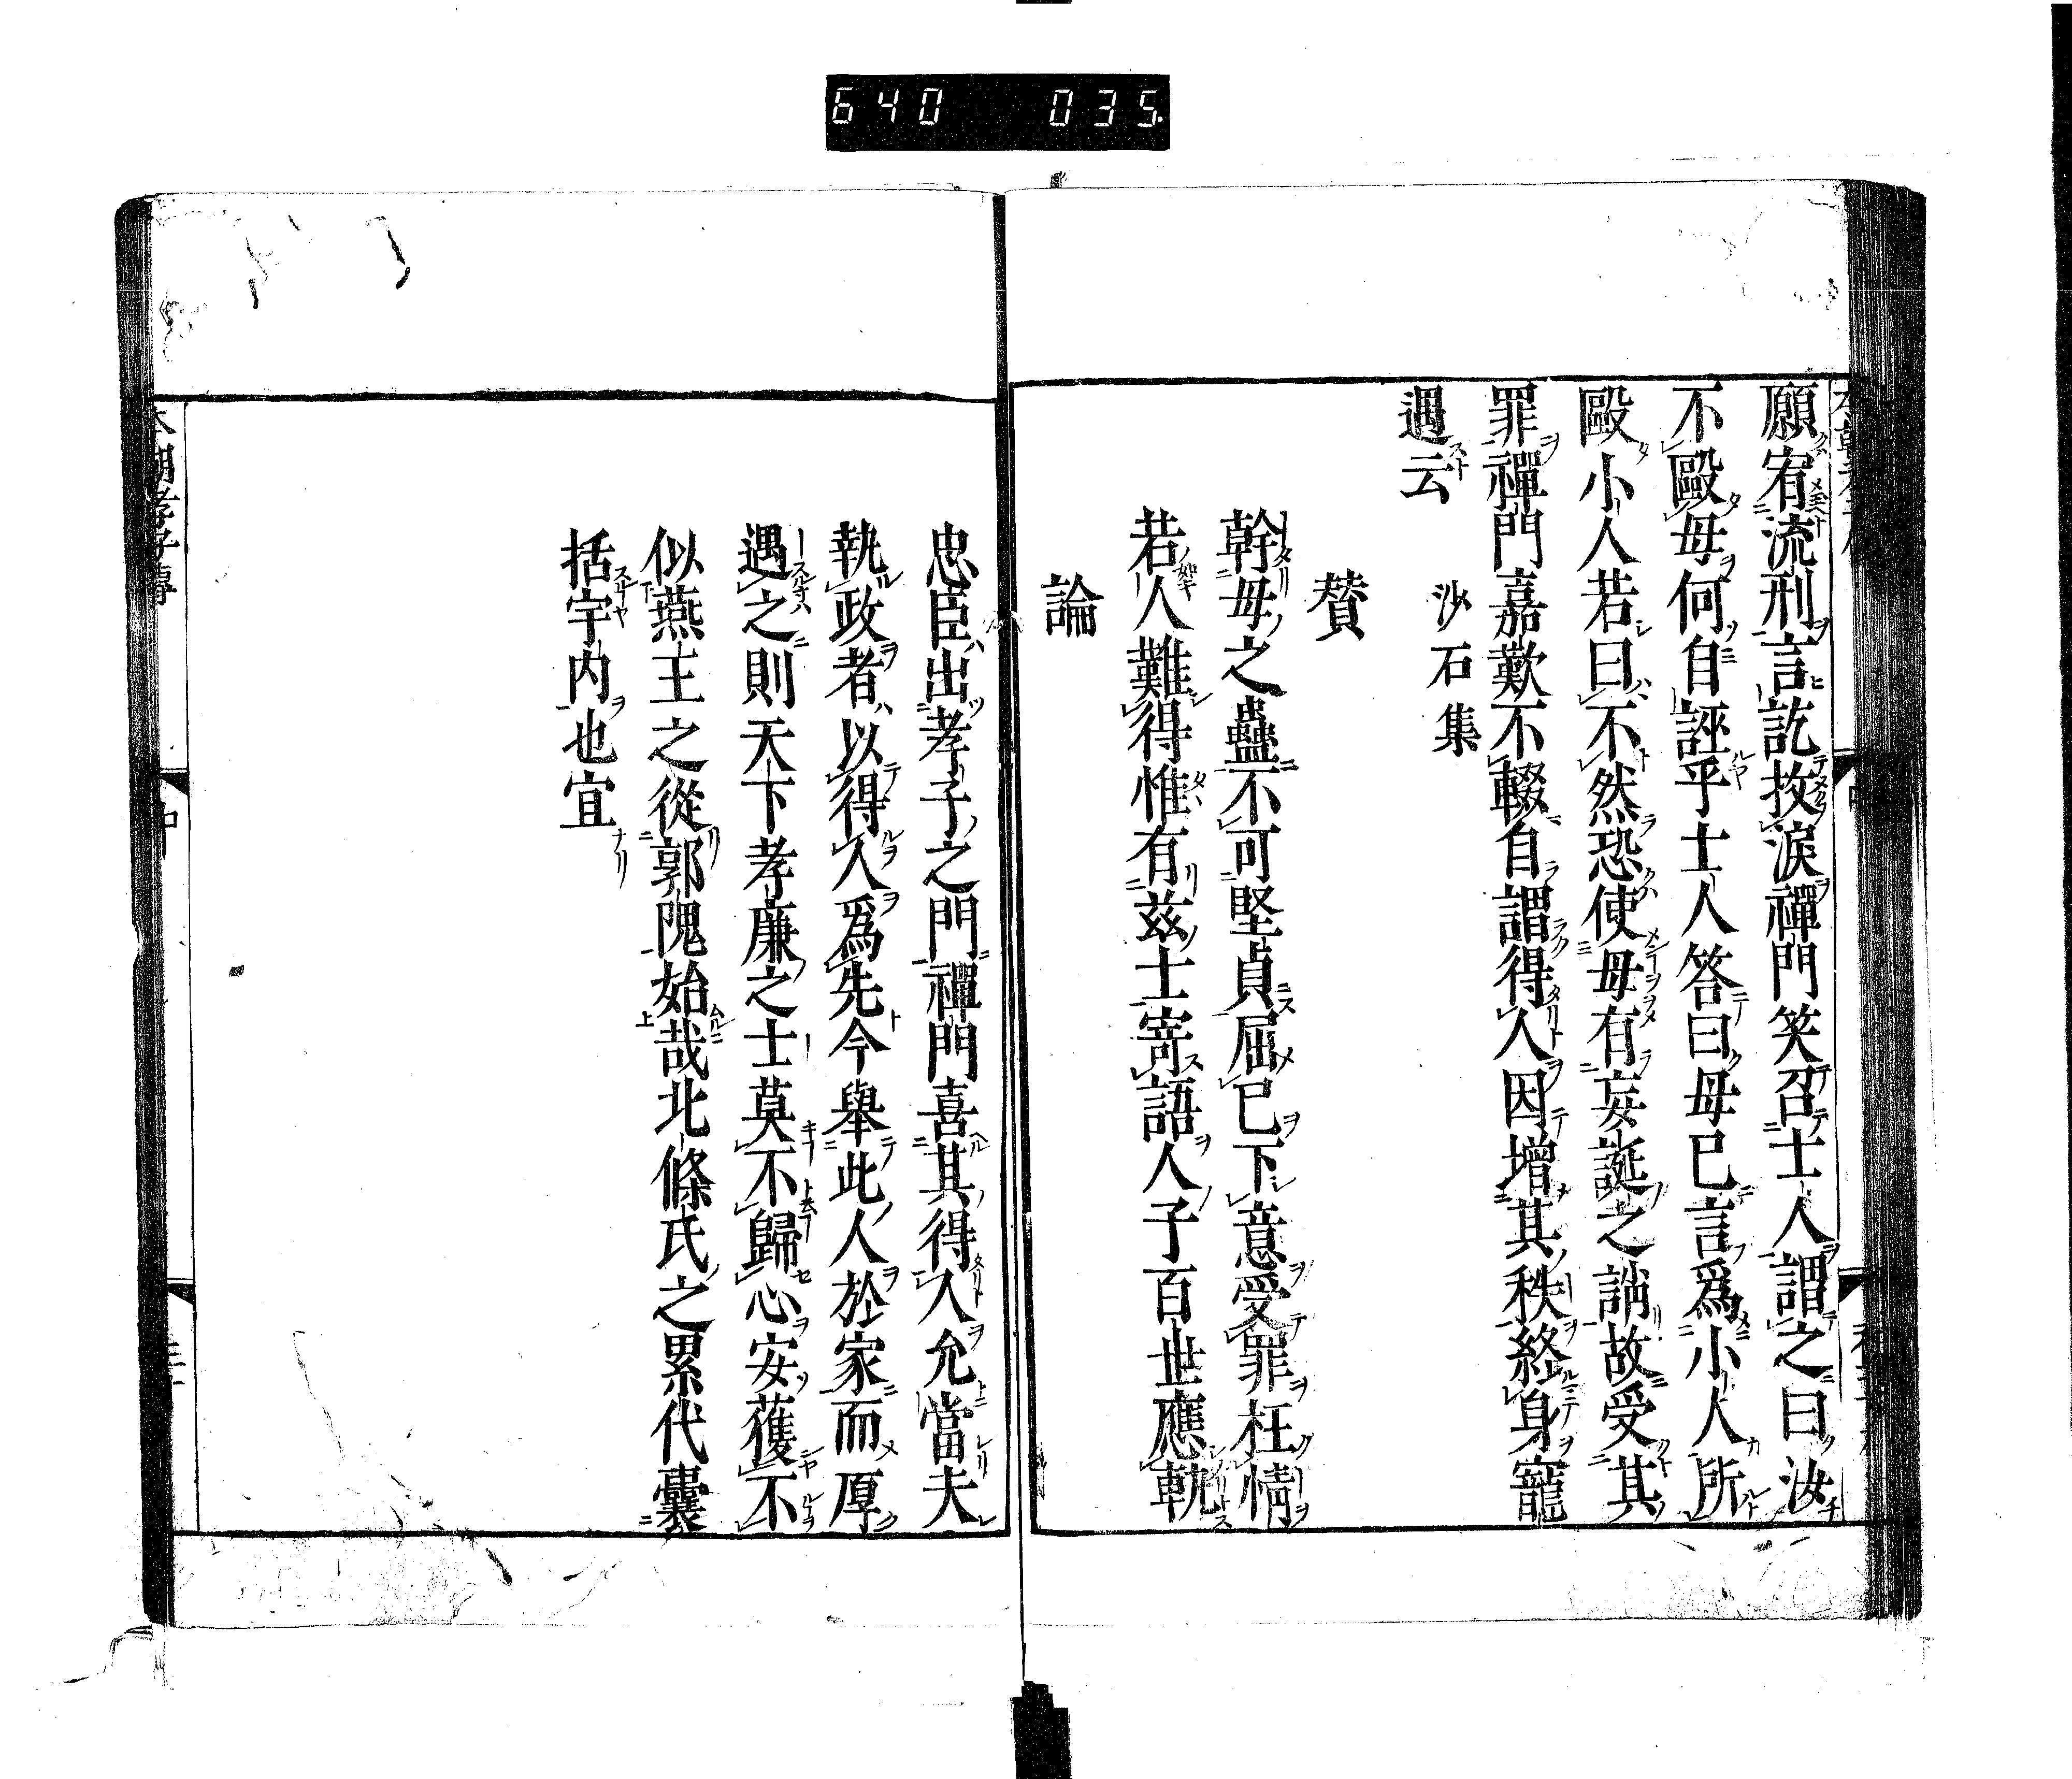 640 035.
願宥流刑言訖抆淚禪門笑召士人謂之曰汝
不毆母何自誣乎士人答曰母已言爲小人所
毆小人若曰不然恐使母有妄誕之誚故受其
罪禪門嘉歎不輟自謂得人因增其秩終身寵
遇云
沙石集
贊
幹母之蠱不可堅貞屈己下意受罪枉情
若人難得惟有茲士寄語人子百世應軌
論
忠臣出孝子之門禪門喜其得人允當夫
執政者以得人爲先今舉此人於家而厚
遇之則天下孝廉之士莫不歸心安獲不
似燕王之從郭隗始哉北條氏之累代囊
括宇內也宜
本朝孝子傳
中